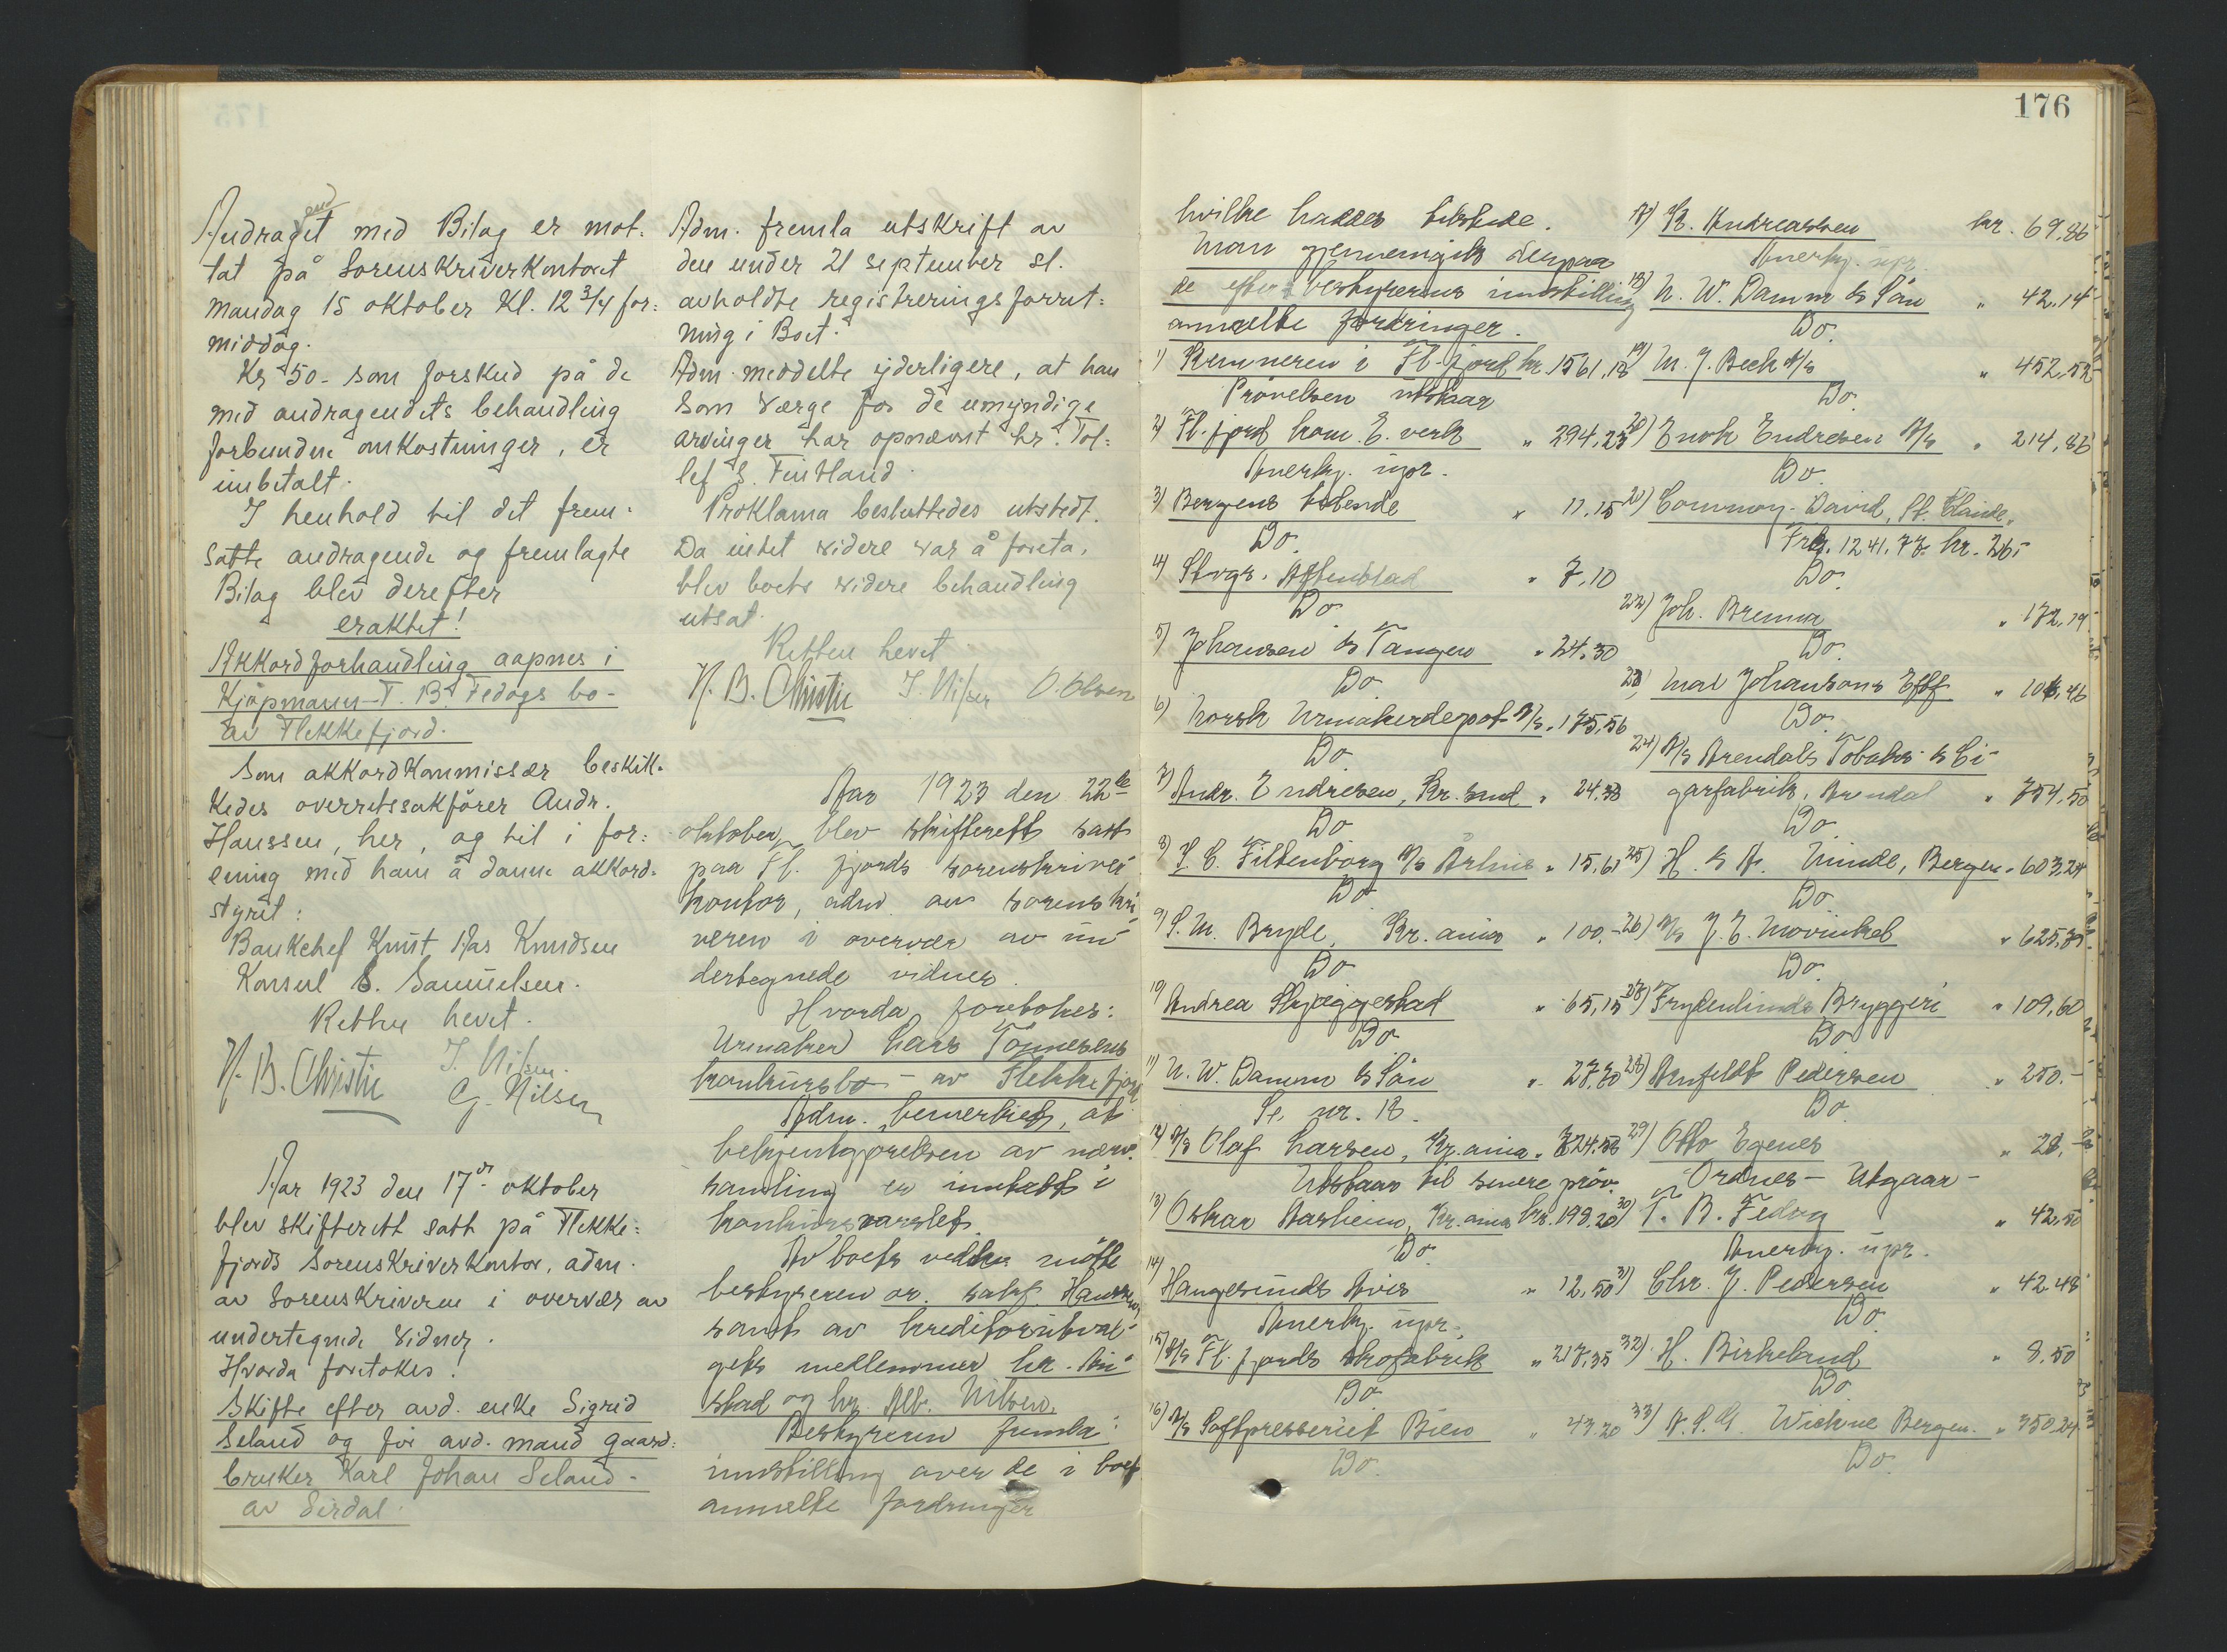 176
Andragendet med Bilag er mot-
tat på Sorenskriverkontoret
mandag 15 oktober kl. 12 3/4 for-
middag.
Kr 50- som forskud på de
med andragendets behandling
forbundne omkostninger, er
inbetalt.
I henhold til det frem-
satte andragende og fremlagte
Bilag blev derefter
eraktet!
Akkordforhandling aapnes i
Kjøpmann T. B. Fedogs bo -
av Flekkefjord.
Som akkordkommissær beskik-
kedes overretssakfører Andr.
Hanssen, her, og til i for-
ening med ham å danne akkord-
styret:
Bankchef Knut Aas Knudsen
Konsul S. Samuelsen.
Retten hevet.
N. B. Christie T. Nilsen.
G. Nilsen
Aar 1923 den 17de oktober
blev skifterett satt på Flekke-
fjords Sorenskriverkontor, adm.
av Sorenskriveren i overvær av
undertegnede vidner.
Hvorda foretokes!
Skifte efter avd. enke Sigrid
Seland og før avd. mand gaard-
bruker Karl Johan Seland -
av Sirdal.
Adm. fremla utskrift av
den under 21 september sl.
avholdte registreringsforret-
ning i Boet.
Adm. meddelte yderligere, at han
som værge for de umyndige
arvinger har opnævnt hr. Tol-
lef S. Fintland.
Proklama besluttedes utstedt.
Da intet videre var å foreta,
blev boets videre behandling
utsat.
Retten hevet
N. B. Christie T. Nilsen O. Olsen
Aar 1923 den 22de
oktober, blev skifterett satt
paa Fl. fjords sorenskriver-
kontor, adm. av sorenskri-
veren i overvær av un-
dertegnede vidner.
Hvorda foretokes:
Urmaker Lars Tønnesens
konkursbo - av Flekkefjord
Adm. bemerket, at
bekjentgjørelsen av nærv.
samling er inntatt i
konkursvarslet.
Av boets vedk. møtte
bestyreren or. sakf. Hanssen
samt av kreditorutval-
gets medlemmer hr.
stad og hr. Alb. Nilsen.
Bestyreren fremla
innstilling over de i boet
anmeldte fordringer
hvilke haddes tilstede.
Man gjennemgik derpaa
de efter bestyrerens innstilling
anmeldte fordringer.
1) Kemneren i Fl. fjord kr. 1561,18
Prøvelsen utstaar
2) Fl. fjord kom. E. verk " 294,23
Anerkj. upr.
3) Bergens tidende " 11,15
Do.
4) Stvgr. Aftenblad " 7,10
Do.
5) Johansen & Tangen " 24,30
Do.
6) Norsk Urmakerdepot A/s " 175,56
Do
7) Andr. Endresen, Kr.sund " 24,38
Do
8) S. C. Filtenborg A/s Århus " 15,61
Do
9) S. M. Bryde, Kr.ania " 100,-
Do
10) Andrea Skjeggestad " 65,15
Do
11) N. W. Damm & Søn " 27,30
Se nr. 18.
12) A/s Olaf Larsen, Kr.ania " 324,56
Utstaar til senere prøv.
13) Oskar Aasheim, Kr.ania kr. 198,20
Do.
14) Haugesunds Avis " 12,50
Anerkj. upr.
15) A/s Fl. fjords skofabrik " 217,35
Do
16) A/s Saftpresseriet Bien " 43.20
Do.
17) K. Andreassen kr. 69,86
Anerkj. upr.
18) N. W. Damm & Søn " 42,14
Do.
19) M. J. Bech A/s " 452,52
Do.
20) Enok Endresen A/s " 214,86
Do.
21) David, St. Claude,
Frc. 1241.77. kr. 26,-
Do.
22) Joh. Brenna " 172,19
Do.
23) Max Johansons Eftf " 106,46
Do.
24) A/s Arendals Tobaks & Ci-
garfabrik, Arendal " 754,50
Do.
25) H. & A. Minde, Bergen " 603,24
Do.
26) A/s J. E. Mowinkel " 625,80
Do.
27) Frydenlunds Bryggeri " 109,60
Do
28) Arnfeldt Pedersen " 250.-
Do
29) Otto Egenes " 28,-
Ordnes - Utgaar -
30) T. B. Fedog " 42,50
Anerkj. upr.
31) Chr. J. Pedersen " 42.48
Do.
32) H. Birkeland " 8,50
Do
33) Wichne Bergen. " 350,24
Do.